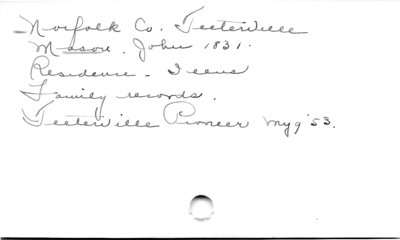 Norfolk Co. Teeterville
Mason. John 1831.
Residence - Deeds
Family records.
Teeterville Pioneer My 9 '53.